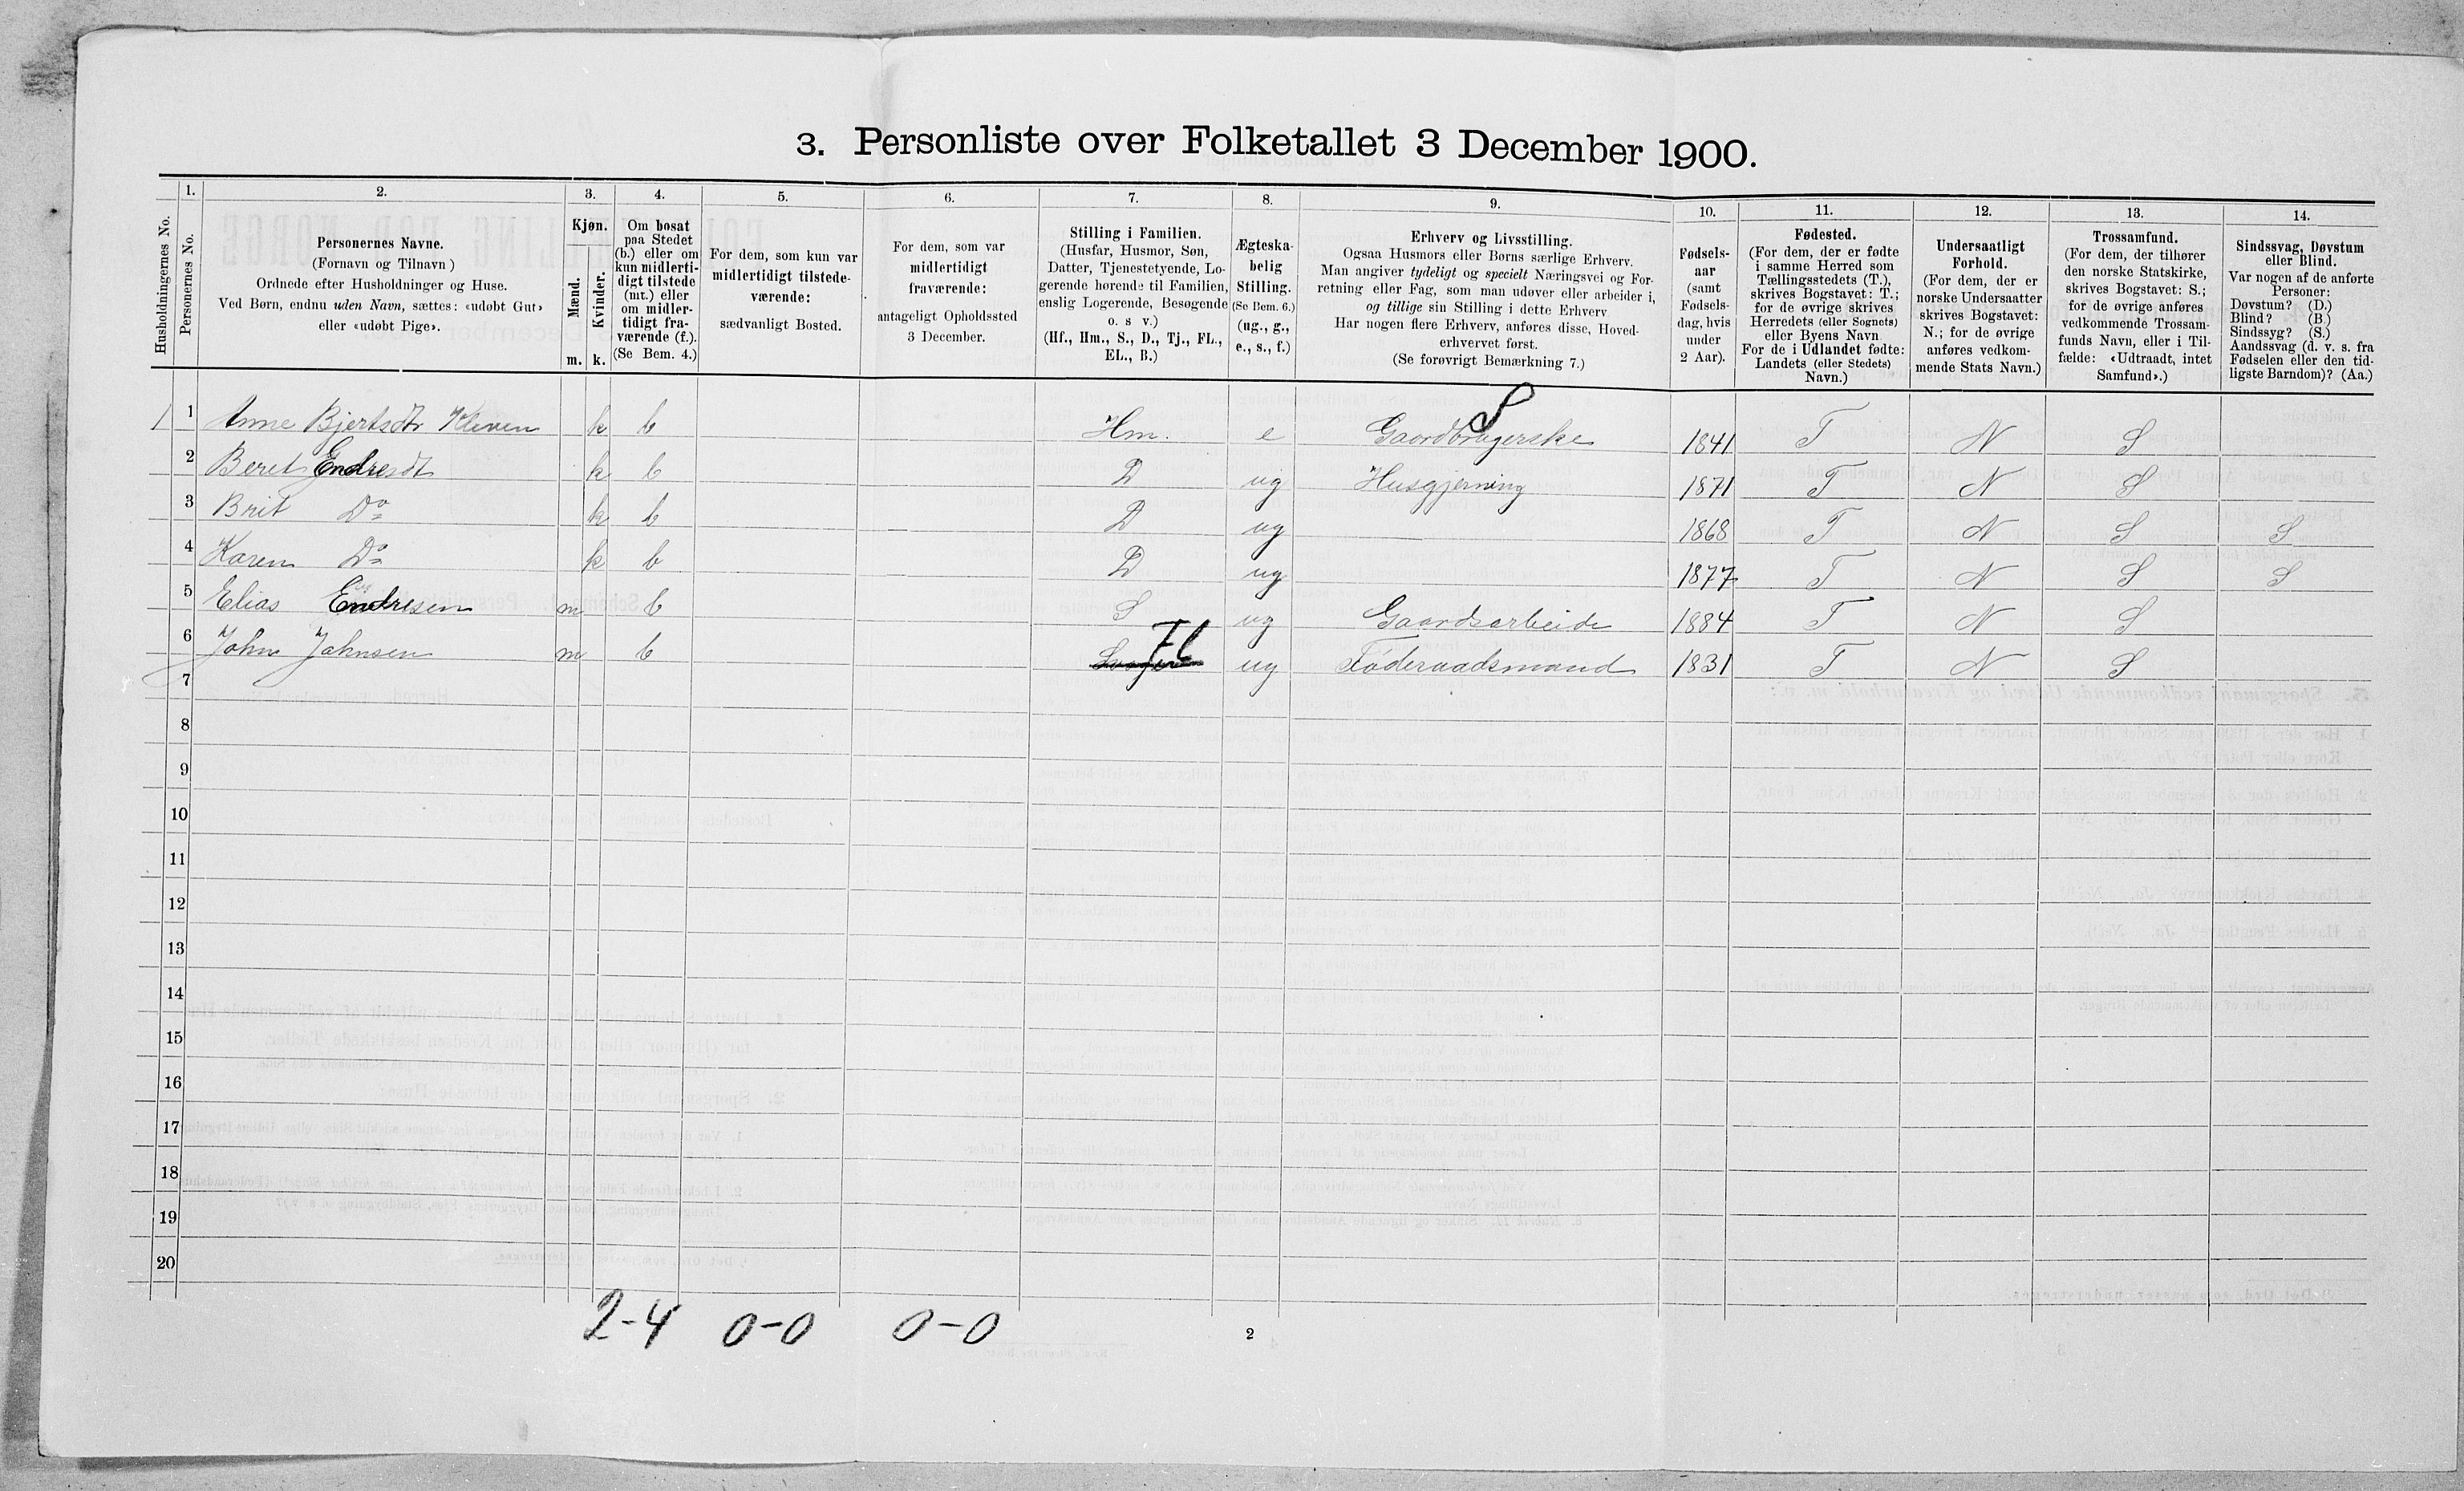 3. Personliste over Folketallet 3 December 1900.
1. 2. 3. 4. 5. 6. 7. 8. 9. 10. 11. 12. 13. 14.
Husholdningernes No.
Personernes No.
Personernes Navne.
(Fornavn og Tilnavn)
Ordnede efter Husholdninger og Huse.
Ved Børn, endnu uden Navn, sættes: «udøbt Gut»
eller «udøbt Pige».
Kjøn.
Mænd.
Kvinder.
m. k.
Om bosat
paa Stedet
(b.) eller om
kun midlerti-
digt tilstede
(mt.) eller
om midler-
tidigt fra-
værende (f.).
(Se Bem. 4.)
For dem, som kun var
midlertidigt tilstede-
værende:
sædvanligt Bosted.
For dem, som var
midlertidigt
fraværende:
antageligt Opholdssted
3 December.
Stilling i Familien.
(Husfar, Husmor, Søn,
Datter, Tjenestetyende, Lo-
gerende hørende til Familien,
enslig Logerende, Besøgende
o. s v.)
(Hf., Hm., S., D., Tj., FL.,
EL., B.)
Ægteska-
belig
Stilling.
(Se Bem. 6.)
(ug., g.,
e., s., f.)
Erhverv og Livsstilling.
Ogsaa Husmors eller Børns særlige Erhverv.
Man angiver tydeligt og specielt Næringsvei og For-
retning eller Fag, som man udøver eller arbeider i,
og tillige sin Stilling i dette Erhverv
Har nogen flere Erhverv, anføres disse, Hoved-
erhvervet først.
(Se forøvrigt Bemærkning 7.)
Fødsels-
aar
(samt
Fødsels-
dag, hvis
under
2 Aar).
Fødested.
(For dem, der er fødte
i samme Herred som
Tællingsstedets (T.),
skrives Bogstavet: T.;
for de øvrige skrives
Herredets (eller Sognets)
eller Byens Navn
For de i Udlandet fødte:
Landets (eller Stedets)
Navn.)
Undersaatligt
Forhold.
(For dem, der er
norske Undersaatter
skrives Bogstavet:
N.; for de øvrige
anføres vedkom-
mende Stats Navn.)
Trossamfund.
(For dem, der tilhører
den norske Statskirke,
skrives Bogstavet: S.;
for de øvrige anføres
vedkommende Trossam-
funds Navn, eller i Til-
fælde: «Udtraadt, intet
Samfund».)
Sindssvag, Døvstum
eller Blind.
Var nogen af de anførte
Personer:
Døvstum? (D.)
Blind? (B.)
Sindssyg? (S.)
Aandssvag (d. v. s. fra
Fødselen eller den tid-
ligste Barndom)? (Aa.)
S
1 1 Anne Bjertsdtr Kleven k b Hm. e Gaardbrugerske 1841 T N S
2 Beret Endresdt k b D ug Husgjerning 1871 T N S
3 Brit Do k b D ug 1868 T N S S
4 Karen Do k b D ug 1877 T N S S
5 Elias Endresen m b S ug Gaardsarbeide 1884 T N S
6 John Johnsen m b Fl ug Føderaadsmand 1831 T N S
7
8
9
10
11
12
13
14
15
16
17
18
19
20
2-4 0-0 0-0
2